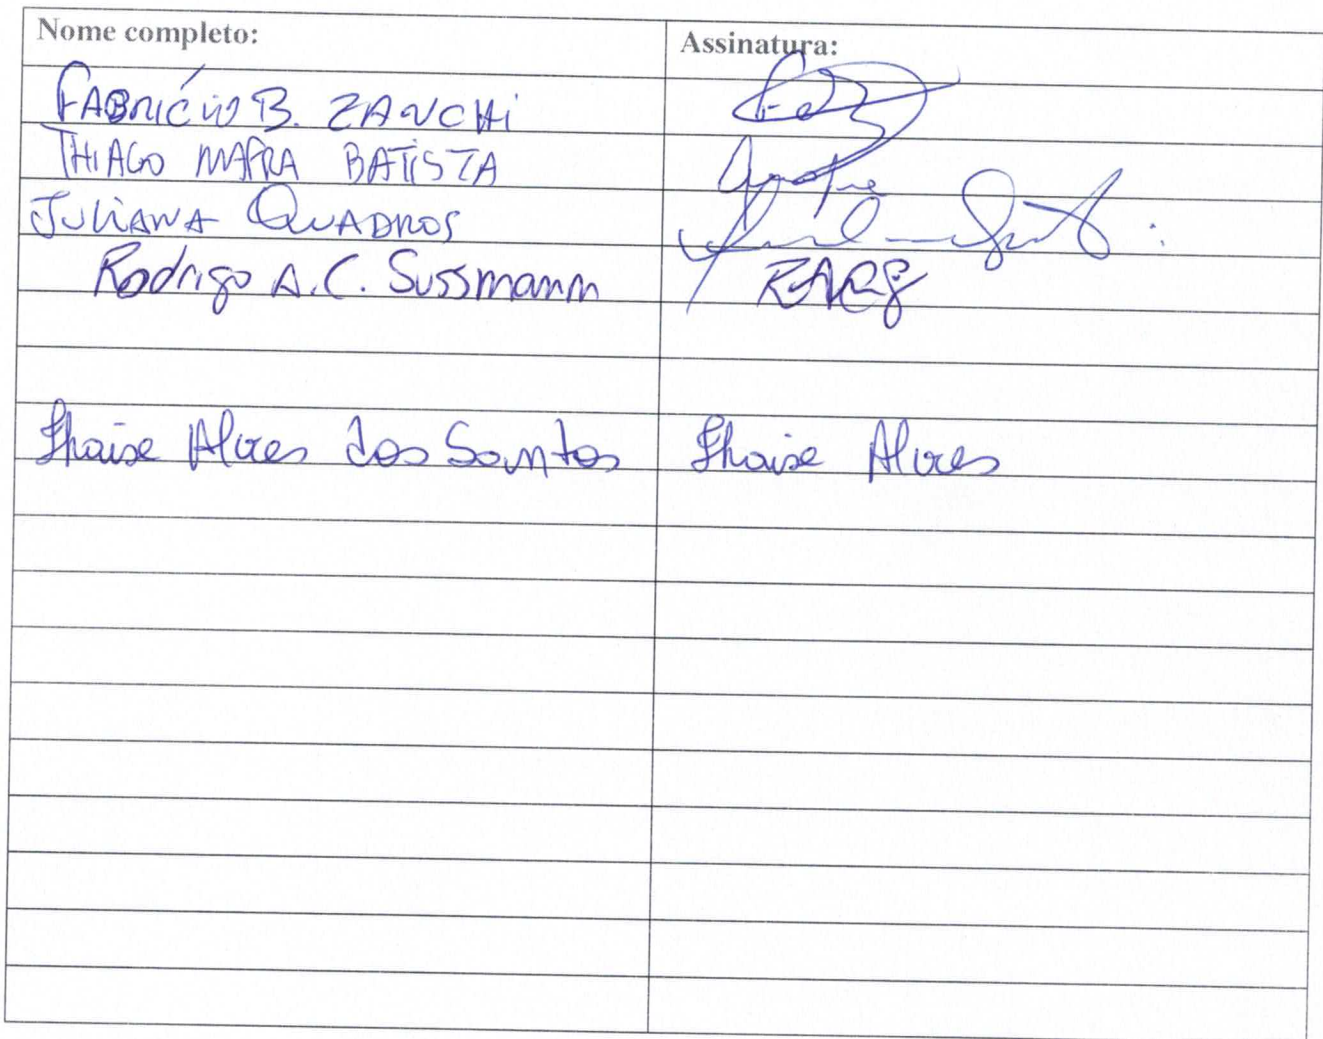 Nome completo: Assinatura:
FABRÍCIO B. ZANCHI
THIAGO MAFRA BATISTA
JULIANA QUADROS
Rodrigo A.C. Sussmann RACS
Thaise Alves dos Santos Thaise Alves